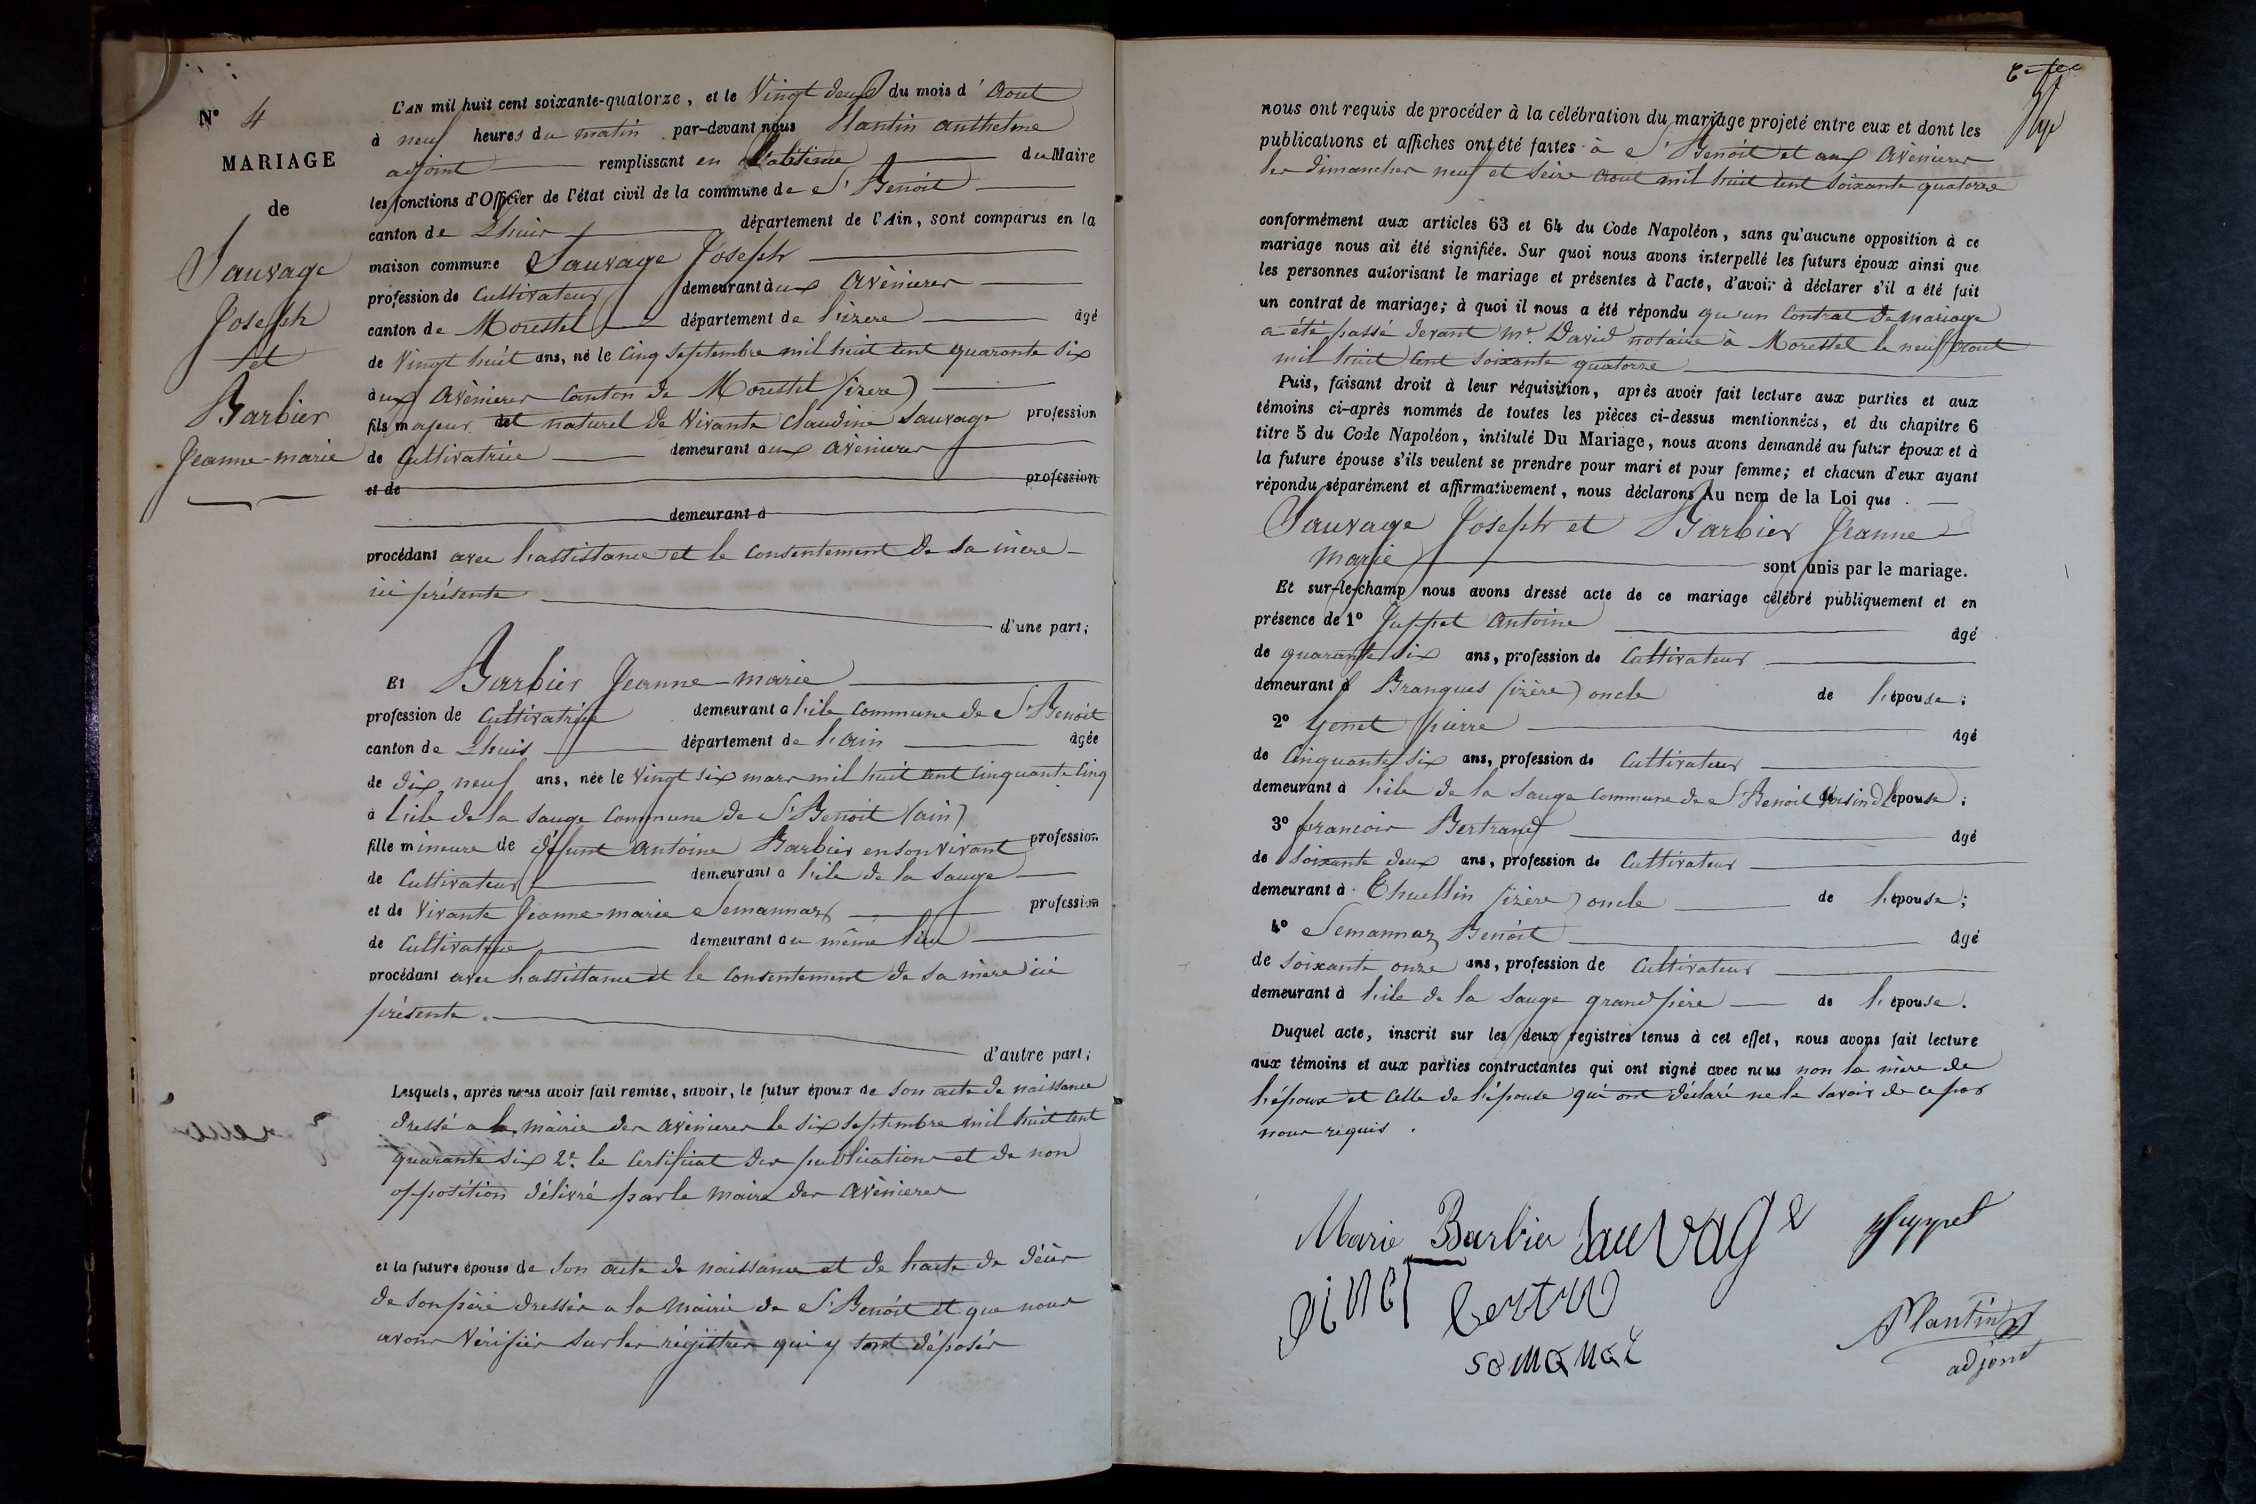 N° 4
MARIAGE
de
Sauvage
Joseph
et
Barbier
Jeanne-marie
L'AN mil huit cent soixante-quatorze, et le Vingt deux du mois d'Aout
à neuf heures du matin par-devant nous Plantin anthelme
adjoint remplissant en du Maire
les fonctions d'Officier de l'état civil de la commune de St Benoit
canton de Lhuis département de l'Ain, sont comparus en la
maison commune Sauvage Joseph
profession de Cultivateur demeurant aux Avenieres
canton de Morestel département de l'izere âgé
de Vingt huit ans, né le Cinq Septembre mil huit cent quarante six
aux Avenieres Canton de Morestel (izere)
fils majeur et naturel de Vivante Claudine Sauvage profession
de Cultivatrice demeurant aux Avenieres
et de profession
demeurant à
procédant avec l'assistance et le Consentement de sa mere
ici présente
d'une part;
Et Barbier Jeanne-marie
profession de Cultivatrice demeurant a l'ile Commune de St Benoit
canton de Lhuis département de l'ain âgée
de dix neuf ans, née le Vingt six mars mil huit cent Cinquante Cinq
à l'ile de la Sauge Commune de St Benoit (ain)
fille mineure de défunt Antoine Barbier en son Vivant profession
de Cultivateur demeurant a l'ile de la Sauge
et de Vivante Jeanne-marie Semannaz profession
de Cultivatrice demeurant au même lieu
procédant avec l'assistance et le Consentement de sa mère ici
présente.
d'autre part;
Lesquels, après nous avoir fait remise, savoir, le futur époux de son acte de naissance
dressé a la mairie des avenieres le six septembre mil huit cent
quarante six 2° le Certificat des publications et de non
opposition délivré par le maire des Avenieres
et la future épouse de son acte de naissance et de l'acte de décès
de son père dressés a la mairie de St Benoit et que nous
avons Vérifiés sur les régistres qui y sont déposés
nous ont requis de procéder à la célébration du mariage projeté entre eux et dont les
publications et affiches ont été faites à St Benoit et aux Avenieres
les dimanches neuf et seize aout mil huit cent soixante quatorze
conformément aux articles 63 et 64 du Code Napoléon, sans qu'aucune opposition à ce
mariage nous ait été signifiée. Sur quoi nous avons interpellé les futurs époux ainsi que
les personnes autorisant le mariage et présentes à l'acte, d'avoir à déclarer s'il a été fait
un contrat de mariage; à quoi il nous a été répondu qu'un Contrat de mariage
a été passé devant Mr. David notaire à Morestel le neuf aout
mil huit cent soixante quatorze
Puis, faisant droit à leur réquisition, après avoir fait lecture aux parties et aux
témoins ci-après nommés de toutes les pièces ci-dessus mentionnées, et du chapitre 6
titre 5 du Code Napoléon, intitulé Du Mariage, nous avons demandé au futur époux et à
la future épouse s'ils veulent se prendre pour mari et pour femme; et chacun d'eux ayant
répondu séparément et affirmativement, nous déclarons Au nom de la Loi que
Sauvage Joseph et Barbier Jeanne-
marie sont unis par le mariage.
Et sur-le-champ nous avons dressé acte de ce mariage célébré publiquement et en
présence de 1° Juppet Antoine âgé
de quarante six ans, profession de Cultivateur
demeurant à Brangues (izère) oncle de l'épouse;
2° Genet Pierre âgé
de Cinquante six ans, profession de Cultivateur
demeurant à l'ile de la Sauge Commune de St Benoit Voisin de l'épouse;
3° francois Bertrand âgé
de soixante deux ans, profession de Cultivateur
demeurant à Thuellin (izère) oncle de l'épouse;
4° Semannaz Benoit âgé
de soixante onze ans, profession de Cultivateur
demeurant à l'ile de la Sauge grand père de l'épouse.
Duquel acte, inscrit sur les deux registres tenus à cet effet, nous avons fait lecture
aux témoins et aux parties contractantes qui ont signé avec nous non la mère de
l'époux et celle de l'épouse qui ont déclaré ne le savoir de ce par
nous requis.
Marie Barbier Sauvage Juppet
Plantin
adjoint